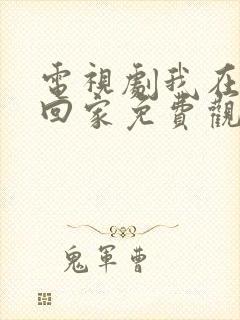 電視劇我在
回家免費觀
鬼軍曹